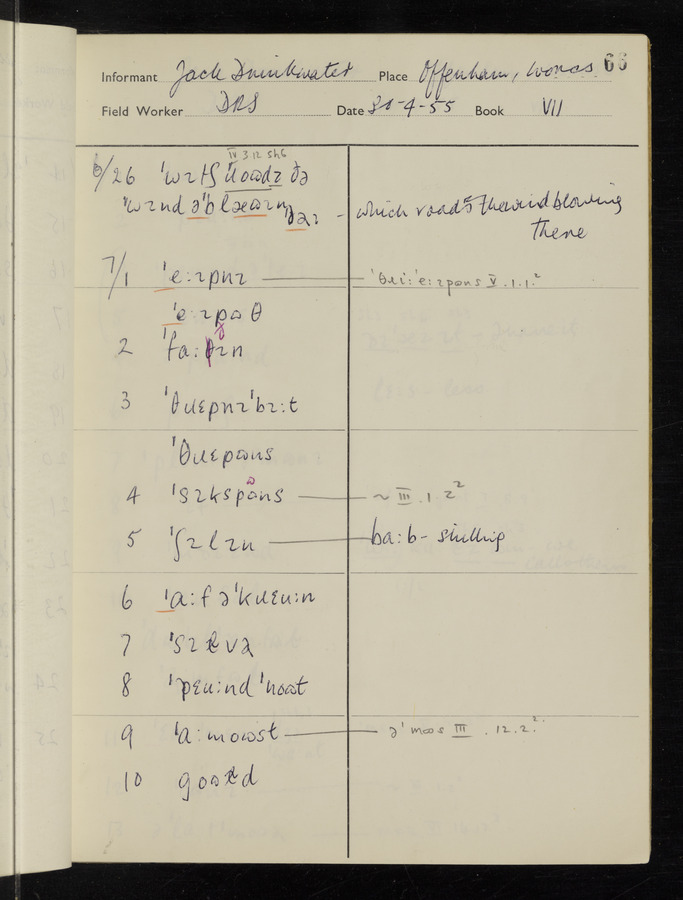 66
Informant Jack Drinkwater Place Offenham, Worcs.
Field Worker DRS Date 30-4-55 Book VII
IV 3 12 sh6
6/26 ˈwɪtʃ ˈɹoʊdz ðə
ˈwɪnd əˈblɔʊɪn ðəɪ - which road's the wind blowing
there
7/1 ˈɛ:ɪpnɪ ˈθɹi:ˈe:ɪpəns V.1.1.²
ˈe:ɪpəθ
2 ˈfa:ðɪn
3 ˈθɹɛpnɪˈbɪ:t
ˈθɹɛpəns
4 ˈsɪkspəns ~ III.1.2²
5 ˈʃɪlɪn ba:b - shilling
6 ˈa:f əˈkɹɛu:n
7 ˈsɪɫvə
8 ˈpɛu:nd ˈnoʊt
9 ˈa:moʊst əˈmoʊs III.12.2²
10 goʊɫd